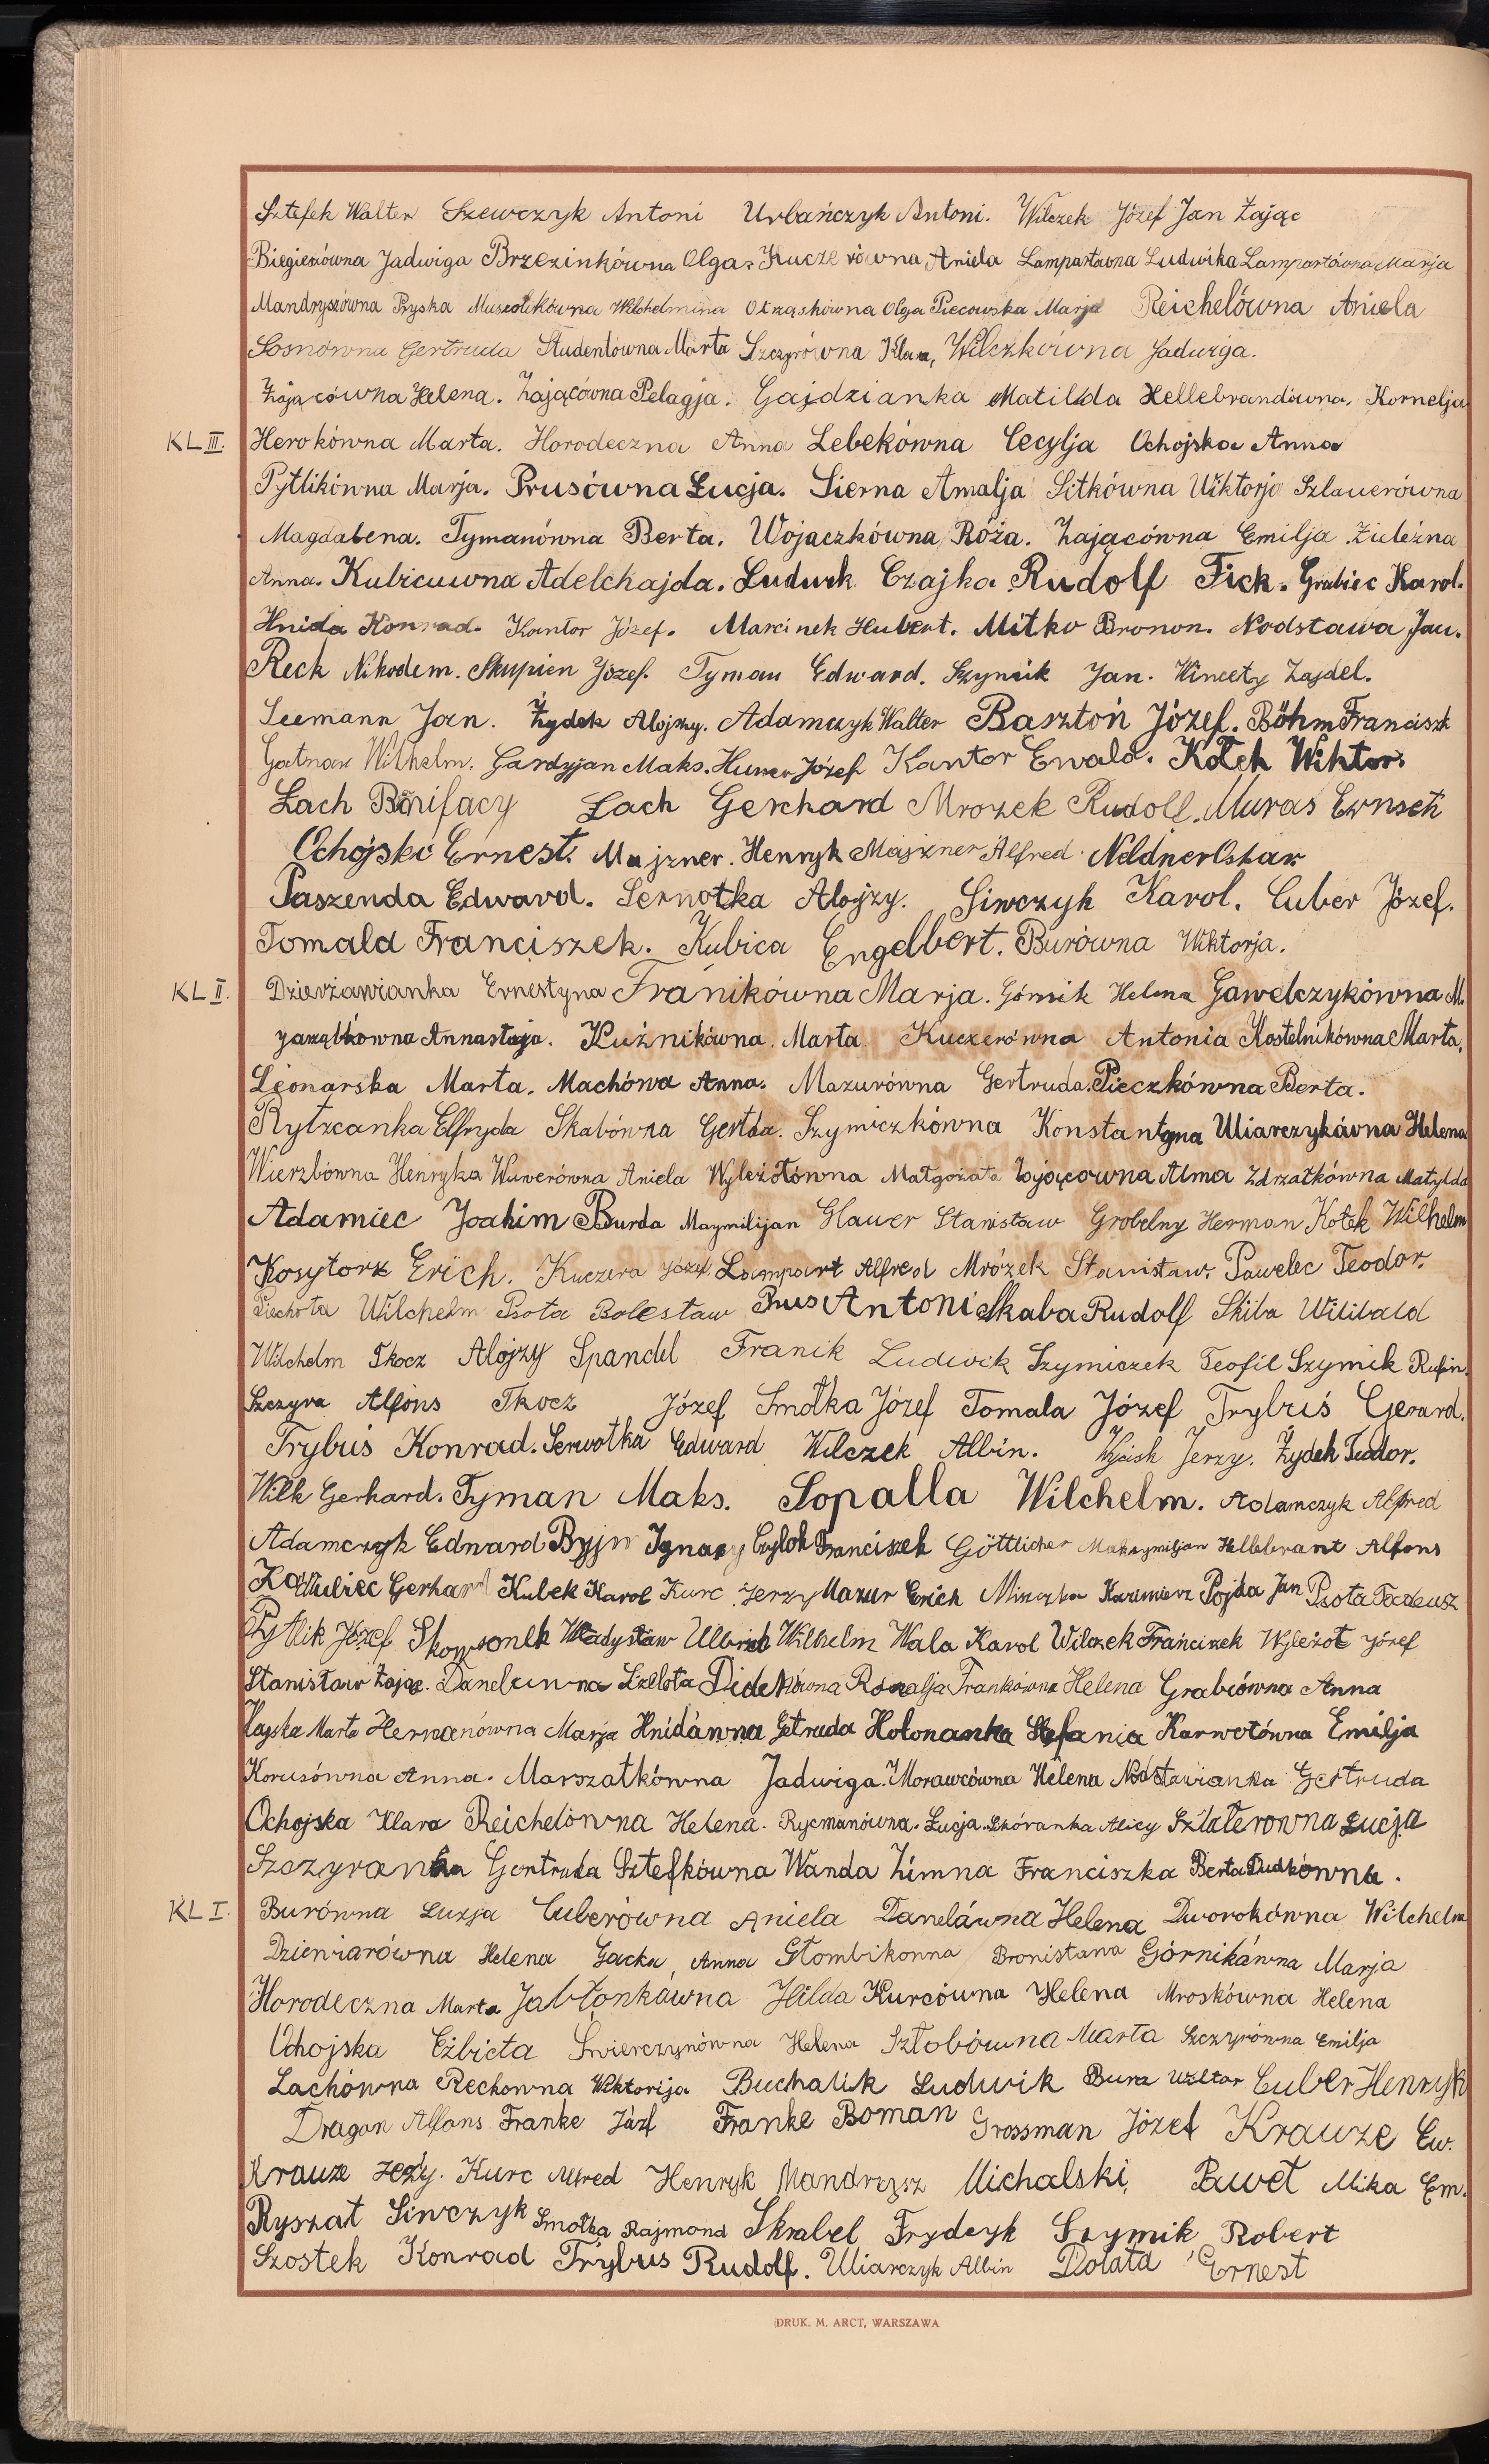 Sztefek Walter Szewczyk Antoni Urbańczyk Antoni. Wilczek Józef Jan Zając
Biegieżówna Jadwiga Brzezinkówna Olga. Kuczerówna Aniela Lampartówna Ludwika Lampartówna Marja
Mandryszówna Pryska Muszolikówna Wilchelmina Otrząskówna Olga Piecowska Marja Reichelówna Aniela
Sosnówna Gertruda Studentówna Marta Szczyrówna Klara, Wilczkówna Jadwiga.
Zającówna Helena. Zającówna Pelagja. Gajdzianka Matilda Hellebrandówna, Kornelja
KL III. Herokówna Marta. Horodeczna Anna Lebekówna Cecylja Ochojska Anna
Pytlikówna Marja. Prusówna Łucja. Sierna Amalja Sitkówna Wiktorja Szlauerówna
Magdalena. Tymanówna Berta. Wojaczkówna Róża. Zającówna Emilja. Zieleźna
Anna. Kubicuwna Adelchajda. Ludwik Czajka Rudolf Fick. Grabiec Karol.
Hnida Konrad. Kantor Józef. Marcinek Hubert. Mitko Bronon. Nodstawa Jan.
Reck Nikodem. Skupien Józef. Tyman Edward. Szymik Jan. Wincety Zajdel.
Seemann Jan. Żydek Alojzy. Adamczyk Walter Basztoń Józef. Böhm Franciszk
Gatnar Wilhelm. Gardyjan Maks. Huwer Józef Kantor Ewald. Kotek Wiktor.
Lach Bonifacy Lach Gerchard Mrozek Rudolf. Muras Ernseti
Ochojski Ernest. Majzner. Henryk Majzner Alfred Neldner Oskar
Paszenda Edward. Sernotka Alojzy. Siwczyk Karol. Cuber Józef.
Tomala Franciszek. Kubica Engelbert. Burówna Wiktorja.
KL II. Dzierżawianka Ernestyna Franikówna Marja. Górnik Helena Gawelczykówna M.
Jarząbkówna Annastazja. Kuźnikówna. Marta Kuczerówna Antonia Kostelnikówna Marta.
Leonarska Marta. Machówa Anna. Mazurówna Gertruda. Pieczkówna Berta.
Rytzcanka Elfryda Skabówna Gertda. Szymiczkówna Konstantyna Uliarczykówna Helena
Wierzbówna Henryka Wuwerówna Aniela Wyleżołówna Małgożata Zającówna Alma Zdrzałkówna Matylda
Adamiec Joakim Burda Maymilijan Glauer Stanisław Grobelny Herman Kotek Wilhelm
Kosytorz Erich. Kuczera Józef. Lampart Alfred Mrózek Stanisław. Pawelec Teodor.
Piechota Wilchelm Psota Bolesław Prus Antoni Skaba Rudolf Skiba Wilibald
Wilchelm Tkocz Alojzy Spandel Franik Ludwik Szymiczek Teofil Szymik Rufin.
Szczyra Alfons Tkocz Józef Smołka Józef Tomala Józef Trybuś Gerard.
Trybuś Konrad. Serwotka Edward Wilczek Albin. Wojcik Jerzy. Żydek Teodor.
Wilk Gerhard. Tyman Maks. Sopalla Wilchelm. Adamczyk Alfred
Adamczyk Edward Ignacy Czylok Franciszek Göttlicher Maksymiljan Hellebrant Alfons
Gerhard Kubek Karol Kurc Jerzy Mazur Erich Kazimierz Pojda Jan Psota Tadeusz
Pytlik Józef Skowronek Władysław Ulbrich Wilhelm Wala Karol Wilczek Franciszek Wyleżoł Józef
Stanisław Zając. Danelówna Szelota Didekówna Rozalja Frankówna Helena Grabcówna Anna
Hajska Marta Hermanówna Marja Hnidówna Getruda Holonanka Stefania Karwotówna Emilja
Korusówna Anna. Marszałkówna Jadwiga. Morawcówna Helena Nodstawianka Gertruda
Ochojska Klara Reichelówna Helena. Rycmanówna. Łucja. Skóranka Alicy Szlaterowna Łucja
Szczyranka Gertruda Sztefkówna Wanda Zimna Franciszka Berta Dudkówna.
KL I. Burówna Łuzja Cuberówna Aniela Danelówna Helena Dworokówna Wilchelm
Dzieniarówna Helena Gacka, Anna Głombikonna Bronisława Górnikówna Marja
Horodeczna Marta Jabłonkówna Hilda Kurcówna Helena Mroskówna Helena
Ochojska Elżbieta Świerczynówna Helena Sztobówna Marta Szczyrówna Emilja
Lachówna Reckowna Wiktorija Buchalik Ludwik Bura Cuber Henryk
Dragon Alfons. Franke Józf Franke Roman Grossman Józef Krauze Ew.
Krauze Jeży. Kurc Alfred Henryk Mandrysz Michalski, Paweł Mika Em.
Ryszat Siwczyk Smołka Rajmond Skrabel Frydcyk Szymik, Robert
Szostek Konrad Trybus Rudolf. Uliarczyk Albin Dolata Ernest
DRUK. M. ARCT, WARSZAWA